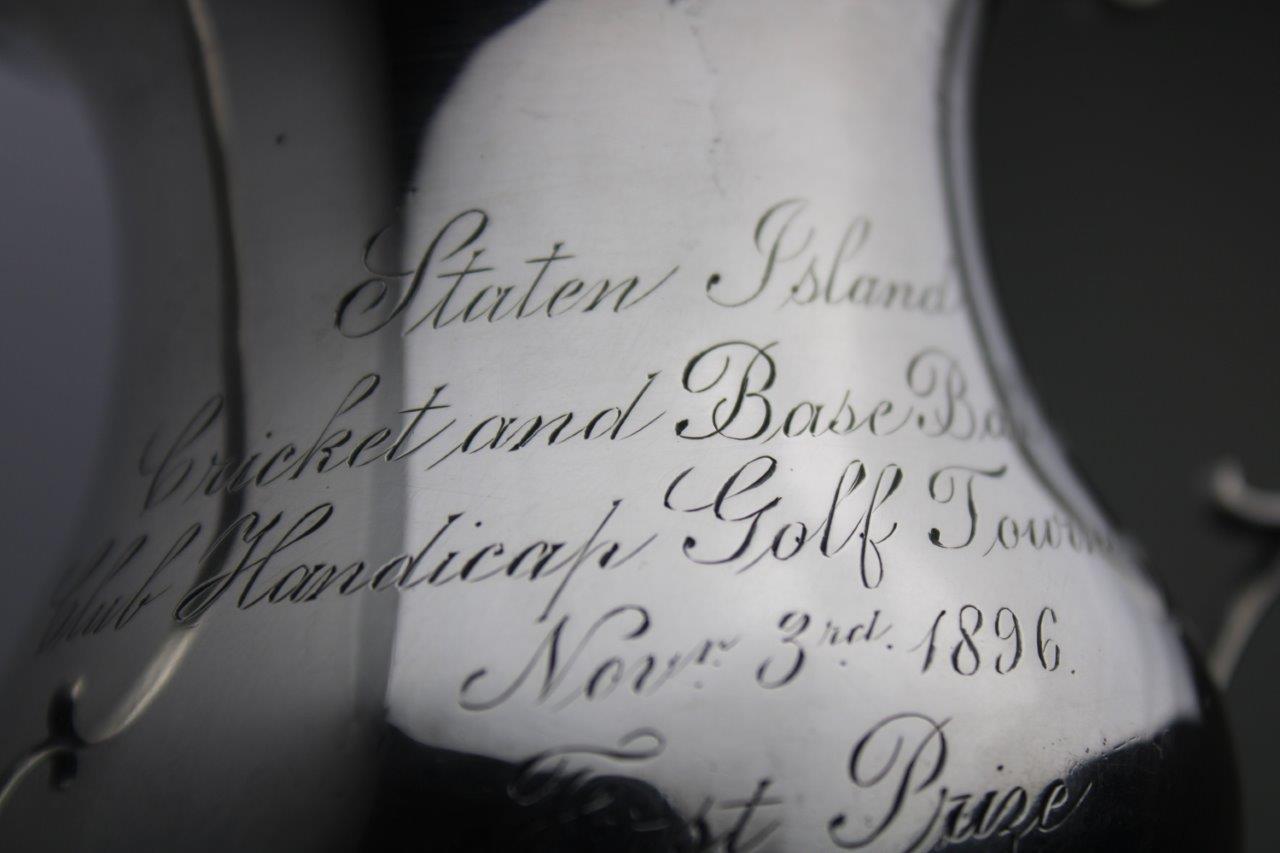 Staten Island
Cricket and Base Ba
Club Handicap Golf Tourn
Novr. 3rd. 1896.
First Prize